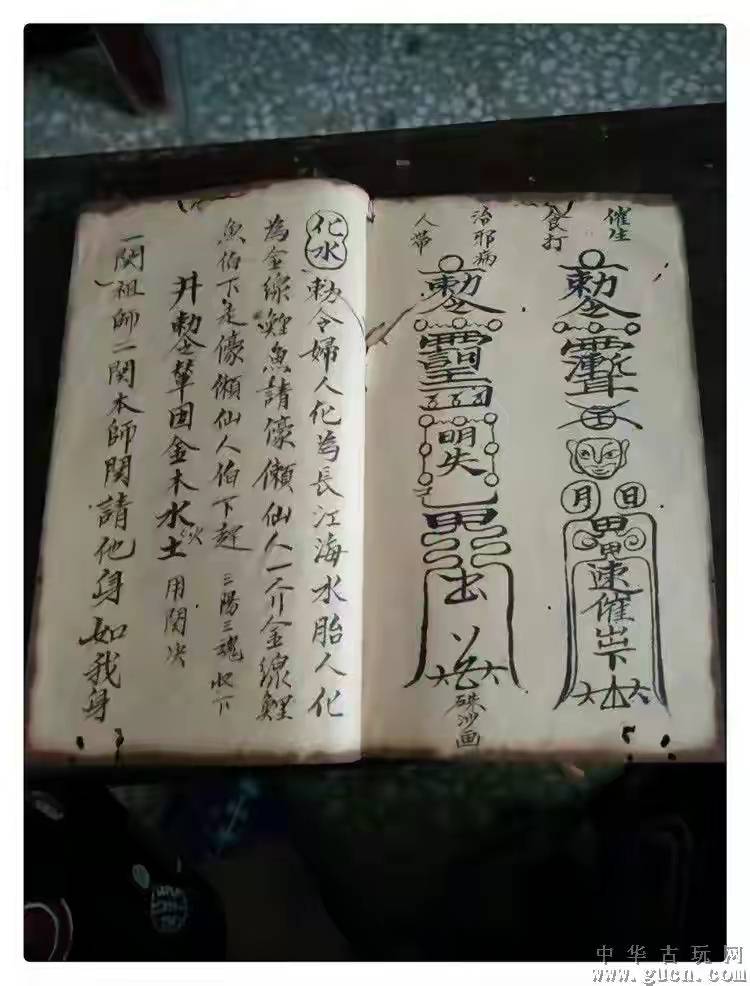 催生
食打
敕令
日
月
速催出下
治邪病
人带
敕令
明失
出
硃沙画
化水
勅令婦人化為長江海水胎人化
為金線鯉魚請儫獺仙人一人行金線鯉
魚伯下是儫獺仙人伯下起
三陽三魂收下
井勅令輦固金木水火土
用関决
一関祖師二関本師関請他身如我身
中华古玩网
www.gucn.com